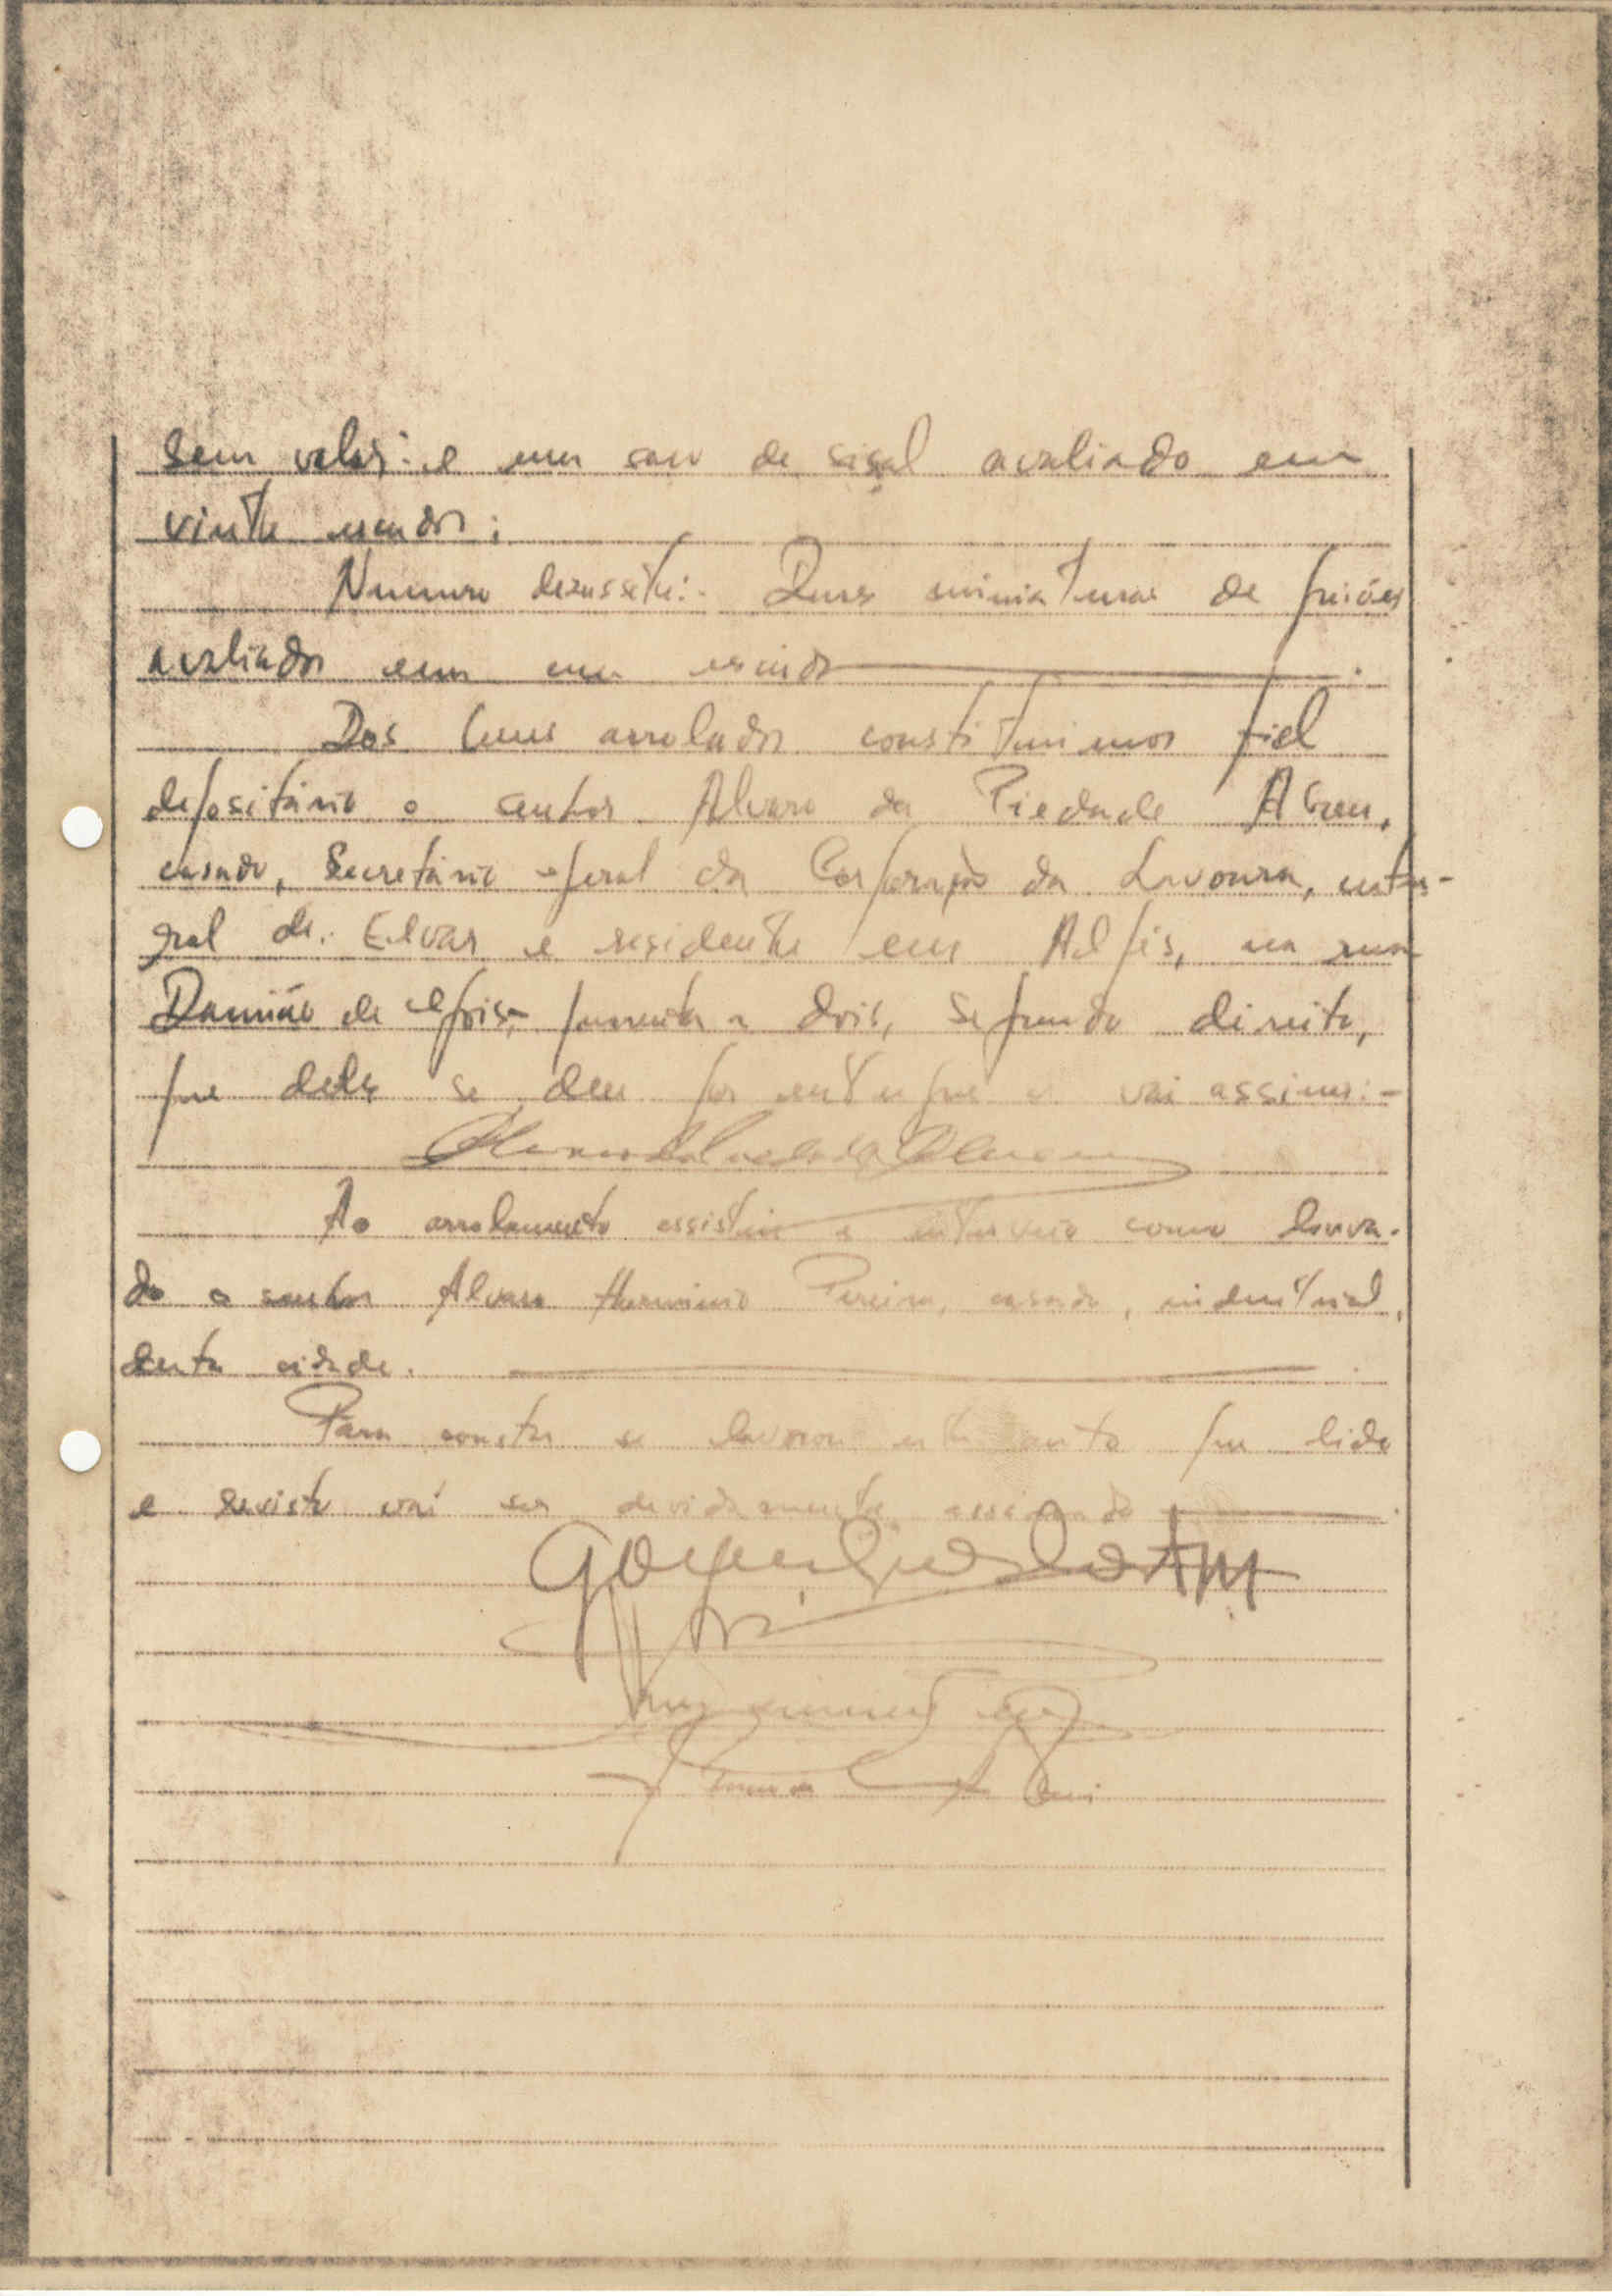 sem valor: e um saco de sisal avaliado em
vinte escudos;
Numero dezassete:- Duas miniaturas de
avaliados em um escudo.
Dos bens arrolados constituimos fiel
depositário o senhor Alvaro da Piedade Abreu,
casado, Secretário geral da Corporação da Lavoura, natu-
ral de Elvas e residente em Algés, na rua
Damião de Gois, quarenta e dois, segundo direito,
que deles se deu por entregue e vai assinar:-
Ao arrolamento assistiu e interveio como louva-
do o senhor Alvaro Herminio Pereira, casado, industrial,
desta cidade.
Para constar se lavrou este auto que lido
e revisto vai ser devidamente assinado.